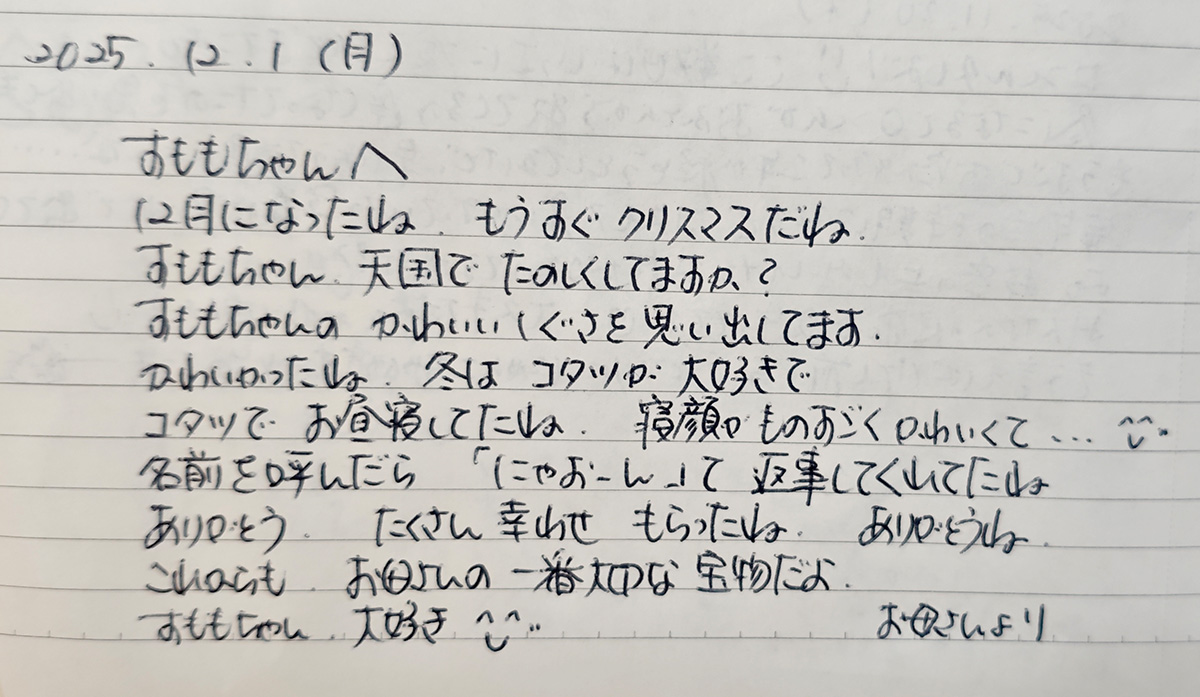 2025.12.1(月)
すももちゃんへ
12月になったね.もうすぐクリスマスだね.
すももちゃん.天国でたのしくしてますか?
すももちゃんのかわいいしぐさを思い出してます.
かわいかったね.冬はコタツが大好きで
コタツでお昼寝してたね.寝顔がものすごくかわいくて...
名前を呼んだら「にゃおーん」て返事してくれてたね
ありがとう.たくさん幸わせもらったね.ありがとうね.
これからも.お母さんの一番大切な宝物だよ.
すももちゃん.大好き
お母さんより